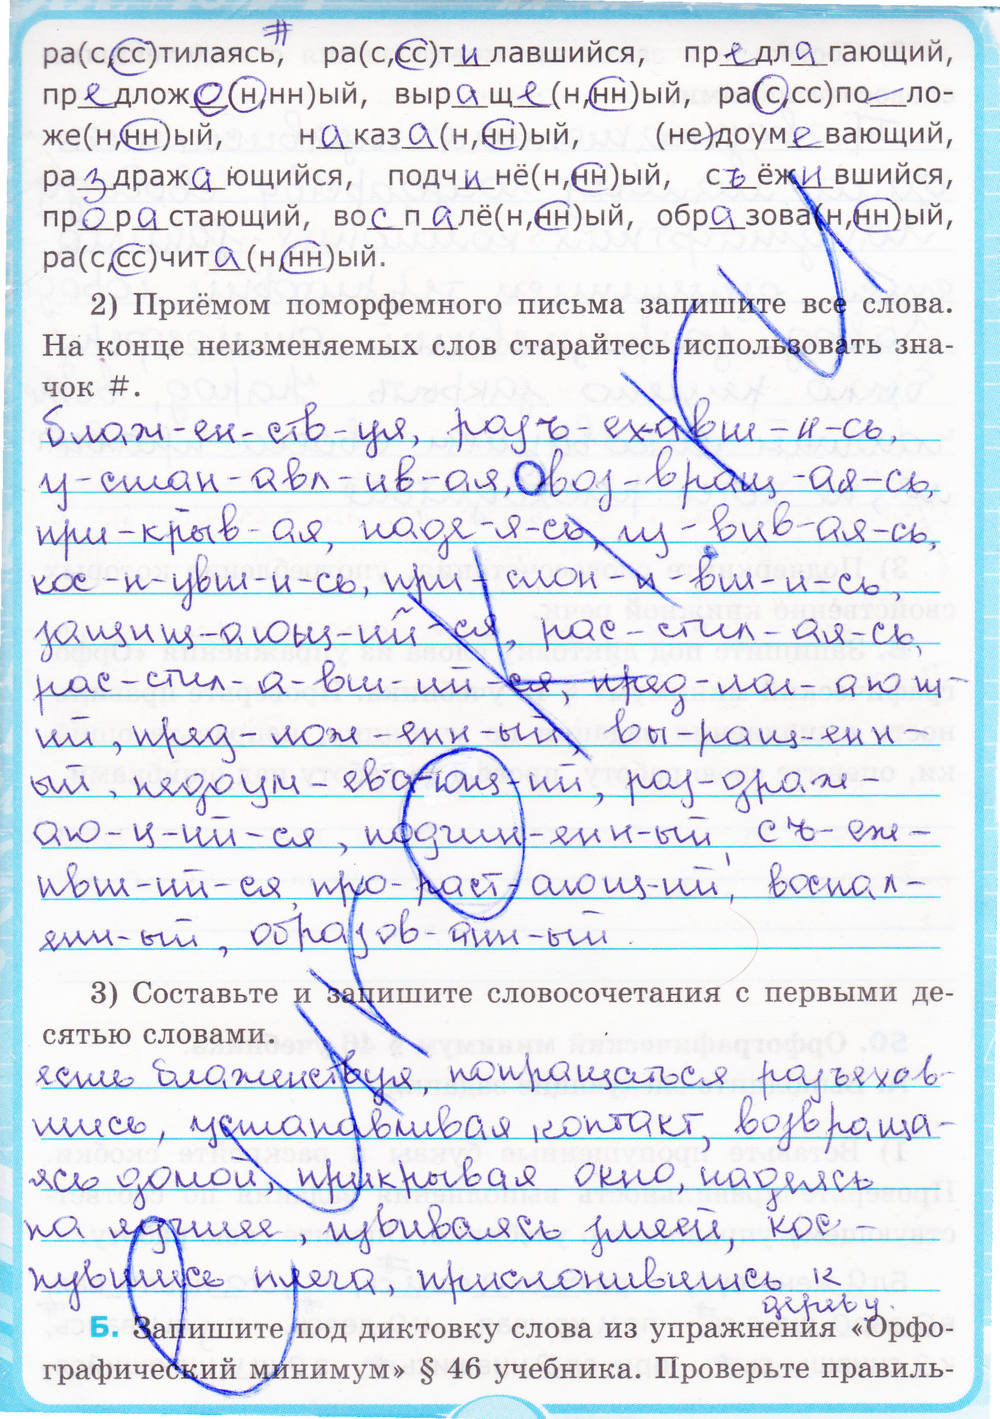 ра(с,сс)тилаясь#, ра(с,сс)тилавшийся, предлагающий,
предложе(н,нн)ый, выраще(н,нн)ый, ра(с,сс)по__ло-
же(н,нн)ый, наказа(н,нн)ый, (не)доумевающий,
раздражающийся, подчинё(н,нн)ый, съёжившийся,
прорастающий, воспалё(н,нн)ый, образова(н,нн)ый,
ра(с,сс)чита(н,нн)ый.
2) Приёмом поморфемного письма запишите все слова.
На конце неизменяемых слов старайтесь использовать зна-
чок #.
блаж-ен-ств-уя, разъ-ехавш-и-сь,
у-стан-авл-ив-ая, воз-вращ-ая-сь,
при-крыв-ая, наде-я-сь, из-вив-ая-сь,
кос-н-увш-и-сь, при-слон-и-вш-и-сь,
защищ-ающ-ий-ся, рас-стил-ая-сь
рас-стил-а-вш-ий-ся, пред-лаг-ающ-
ий, пред-лож-енн-ый, вы-ращ-енн-
ый, недоум-евающ-ий, раз-драж
аю-щ-ий-ся, подчин-енн-ый, съ-еж-
ивш-ий-ся, про-раст-ающ-ий, воспал-
енн-ый, образов-анн-ый
3) Составьте и запишите словосочетания с первыми де-
сятью словами.
есть блаженствуя, попращаться разъехав-
шись, устанавливая контакт, возвраща-
ясь домой, прикрывая окно, надеясь
на лучшее, извиваясь змеей, кос-
нувшись плеча, прислонившись к
дереву.
Б. Запишите под диктовку слова из упражнения «Орфо-
графический минимум» § 46 учебника. Проверьте правиль-